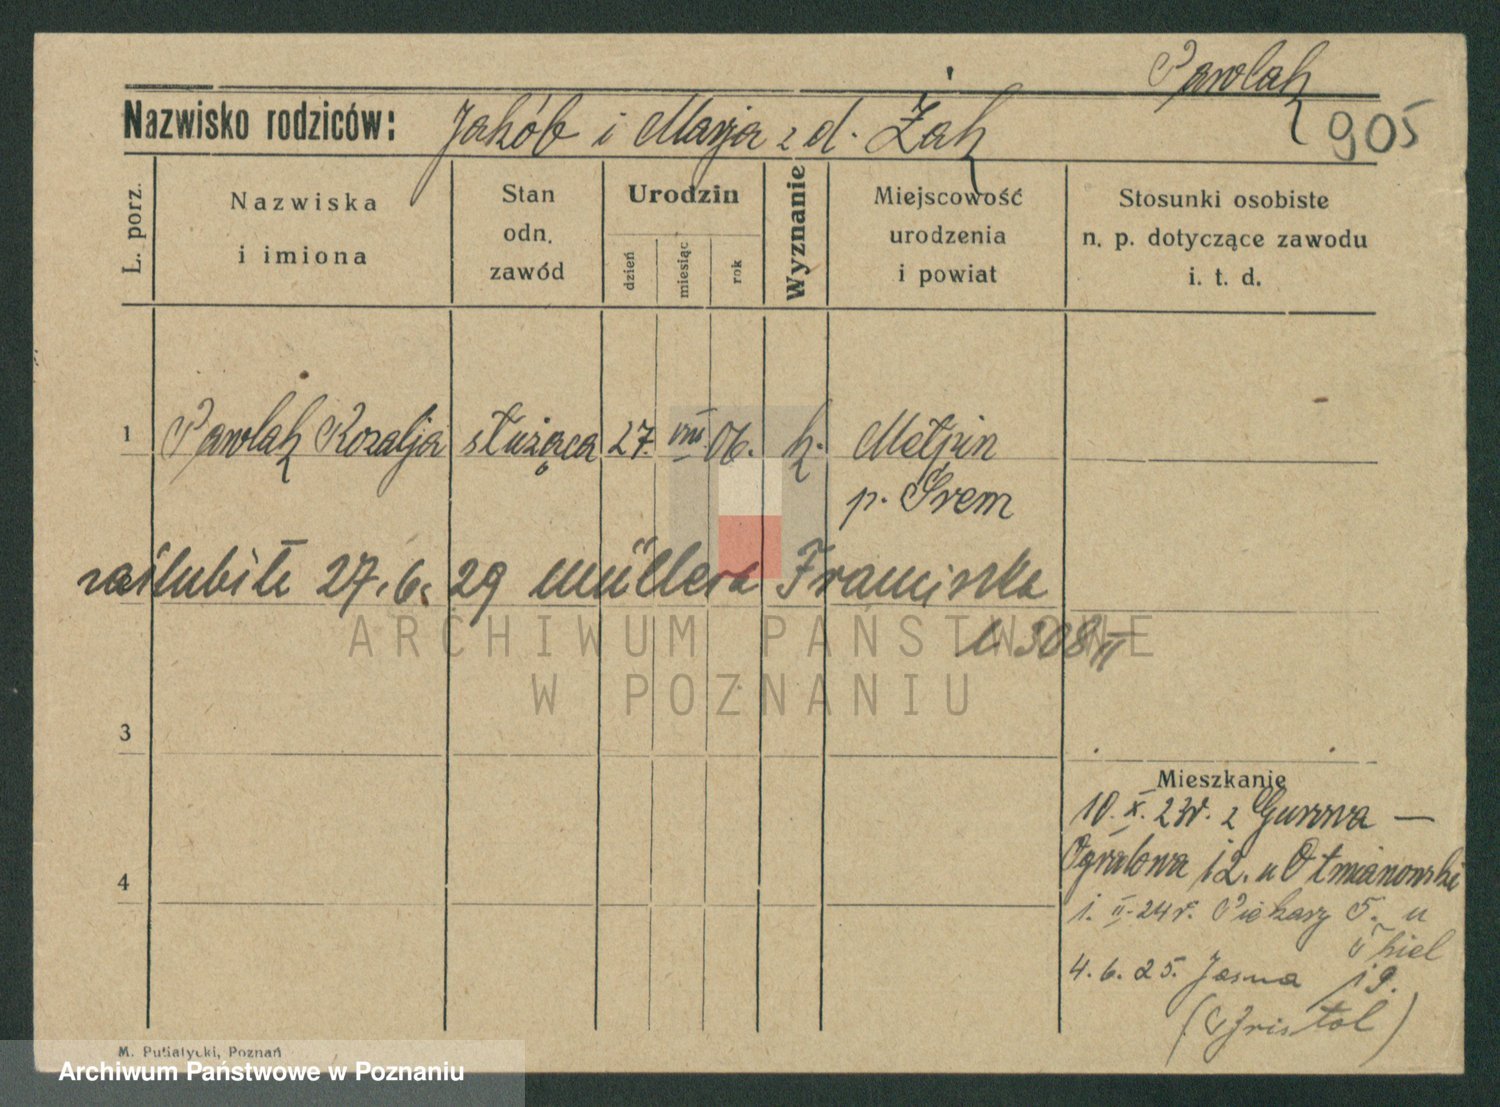 Pawlak
905
Nazwisko rodziców: Jakób i Marja z d. Żak
L. porz.
Nazwiska
i imiona
Stan
odn.
zawód
Urodzin
dzień
miesiąc
rok
Wyznanie
Miejscowość
urodzenia
i powiat
Stosunki osobiste
n. p. dotyczące zawodu
i. t. d.
1 Pawlak Rozalja służąca 27. VIII 06. k. Mełpin
p. Śrem
zaślubiła 27.6.29 Müllera Franciszka
308 II
ARCHIWUM PAŃSTWOWE
W POZNANIU
3
Mieszkanie
10. X. 23r. z
4
Ogrodowa 12. u Otmianowski
1. II. 24 r. Piekary 5. u
Thiel
4. 6. 25. Jasna 19.
M. Putiatycki, Poznań
Archiwum Państwowe w Poznaniu